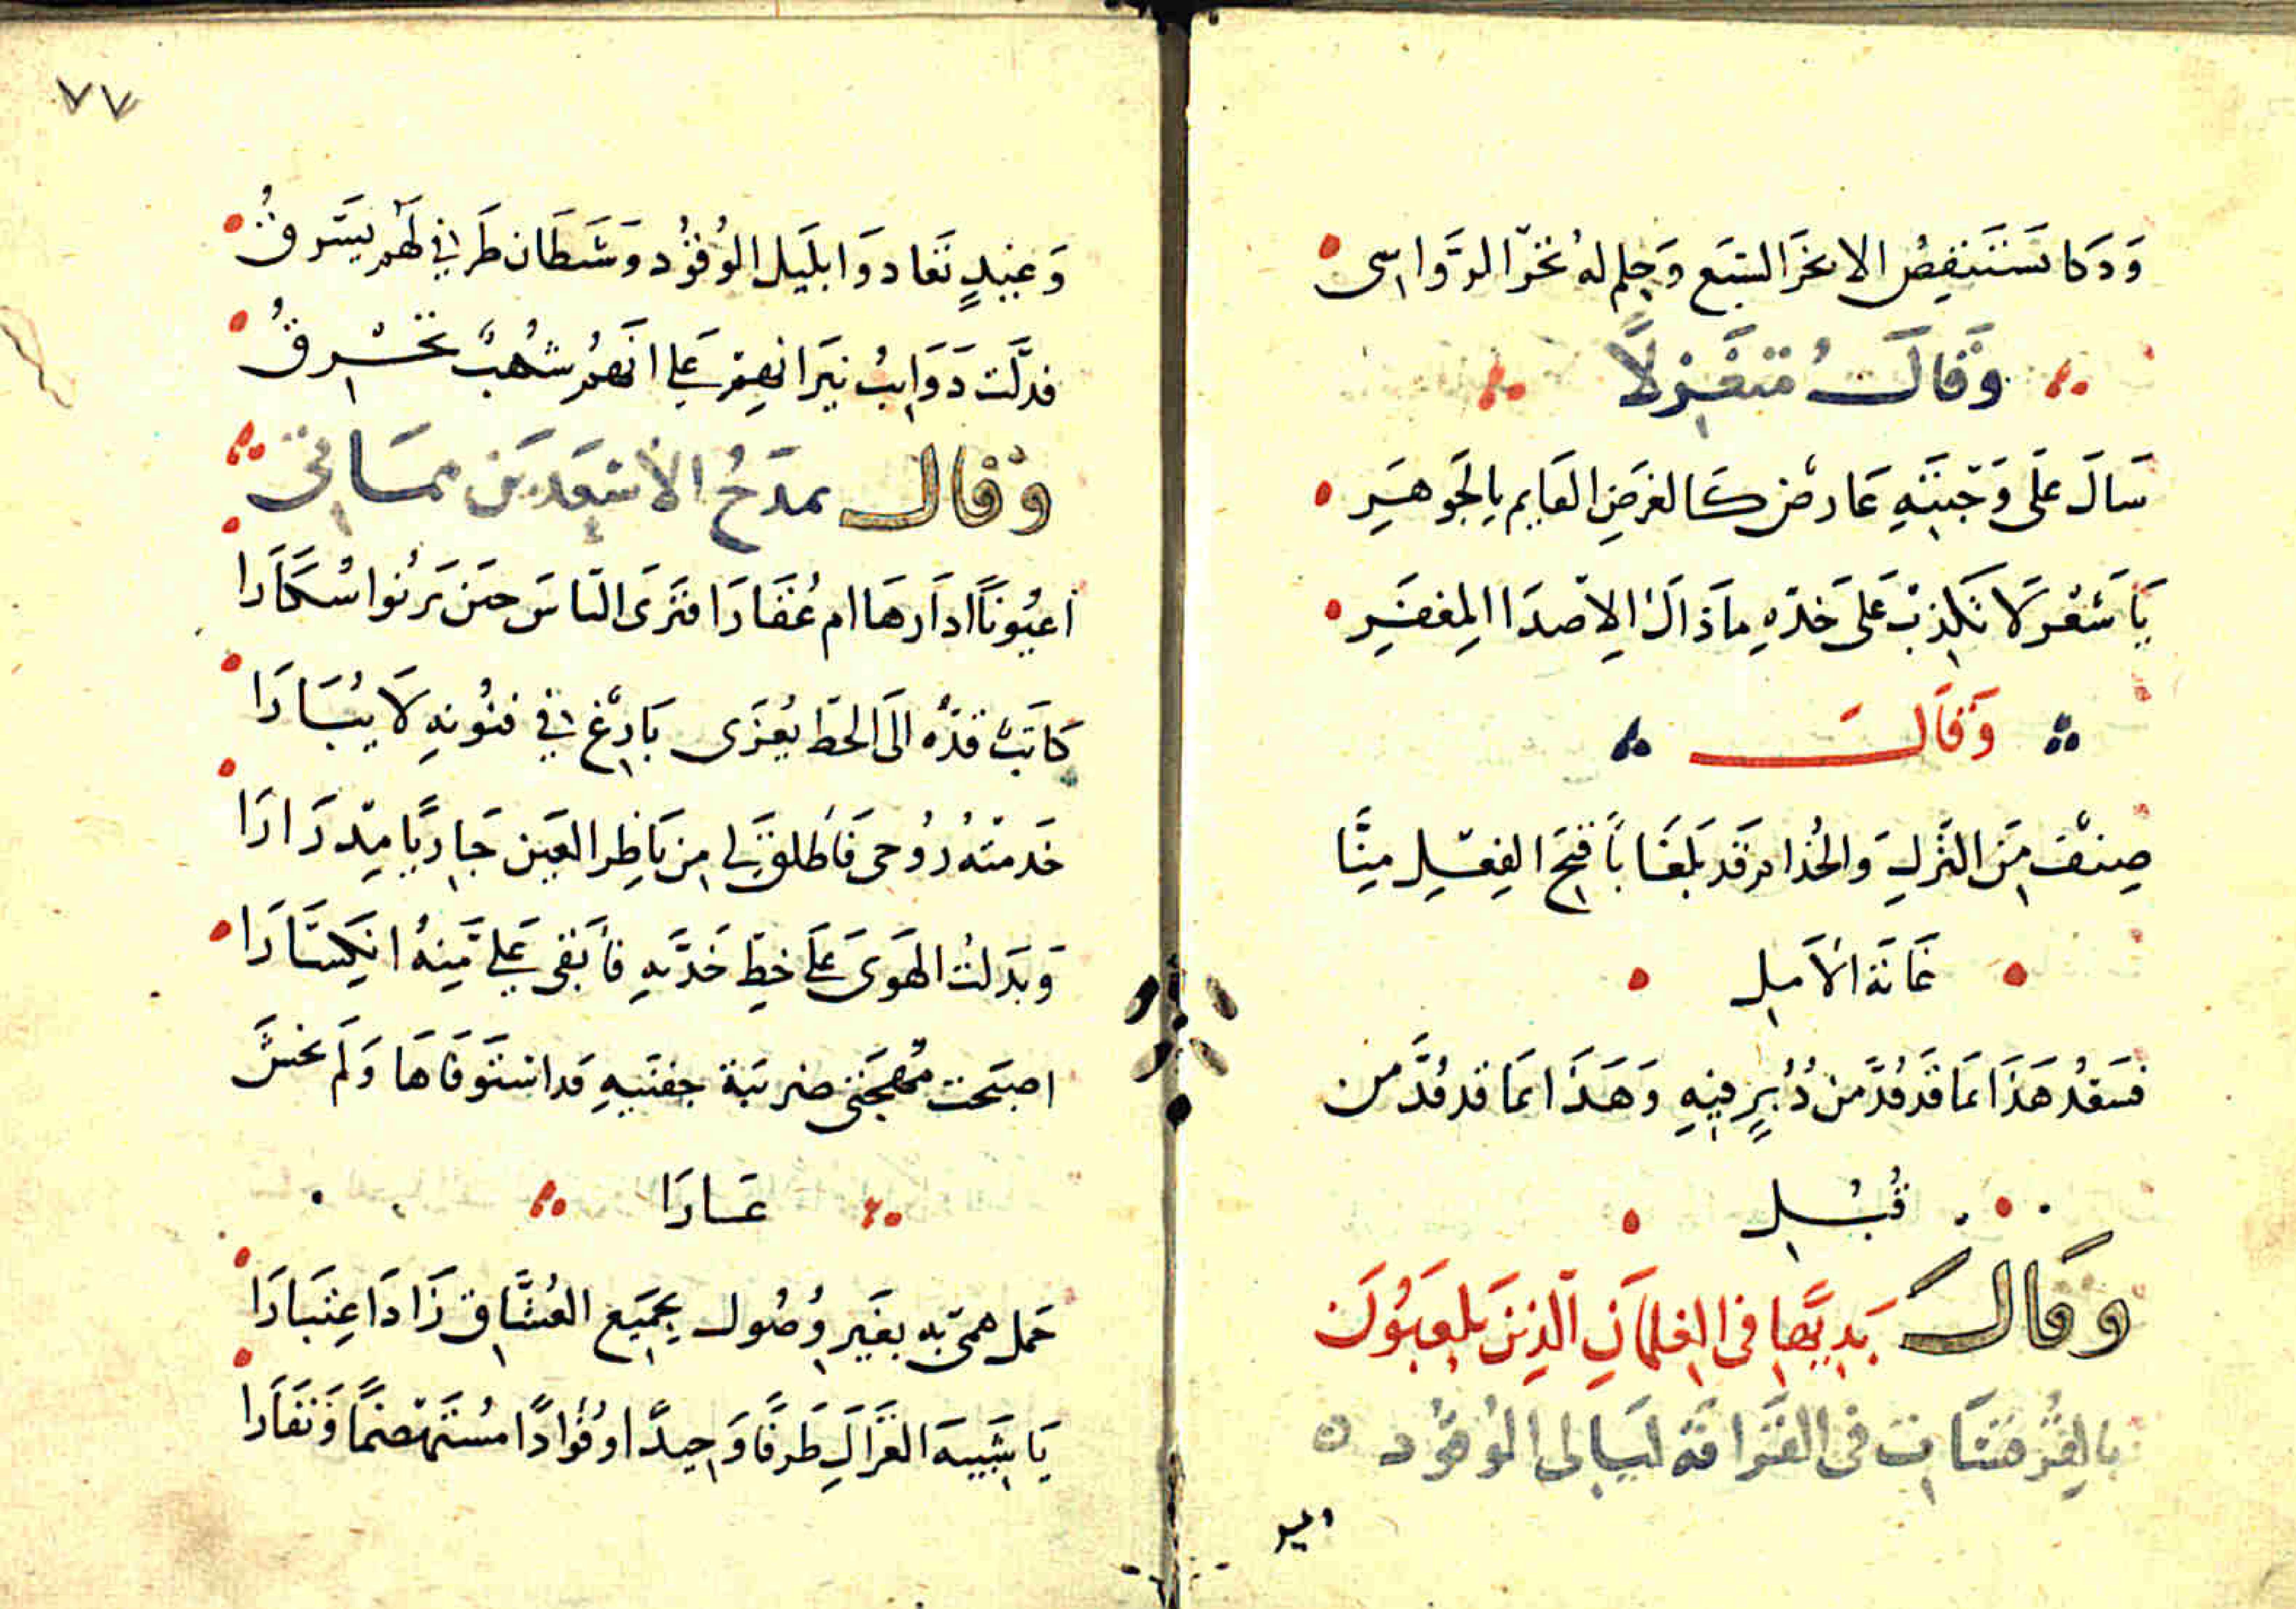 وَذكا تستنقص الابحَر السَبَع وَحلم لهُ تخرّ الرَّوَاسى
وَقالَ مُتغَزلاً
سَالَ عَلى وَجْنَتهِ عَارضٌ كَالعَرَضِ القايم بالجَوهَرِ
يَا شَعْر لا تَكذبْ عَلى خَدّهِ مَا ذاكَ الا صَدَا المِغفَرِ
وَقَالَ
صِنْفٌ مِنَ التركِ وَالخُدام قد بَلغَا بأقبَح الفِعْلِ مِنَّا
غَايَة الأمَلِ
فَسَعْدُ هَذا بمَا قَد قُدَّ مِن دُبُرٍ فيهِ وَهَذا بمَا قد قُدَّ من
قُبُلِ
وَقالَ بَديهًا فى الغلمَانِ الّذِينَ يَلعَبُونَ
فى القَرَافَة ليَالى الوُقوُد
وَعَبيدٍ تعَادوَا بليَل الوُقوُد وَشَيطان طَرفى لهُم يَسْرقُ
فدلّت ذوَايبُ نيرَانهم عَلى انّهُم شُهبٌ تحْرقُ
وَقال يمدَحُ الأسْعَد بَن ممَاتى
اعيُونًا ادَارهَا ام عُقَارَا فتَرى النّاسَ حيَن يَرنُوا سُكَارَا
كاتبٌ قدّهُ الى الخطّ يُعْزَى بَارعٌ فى فنُونهِ لا يُبَارَا
خَدمتْهُ رُوحى فأطلقَ لى مِن نَاظِر العَين جَاريًا مِدْرَارَا
وَبَدلتُ الهَوَى عَلى خطِّ خَدَّيهِ فأبقى عَلىّ مِنهُ انكِسَارَا
اصبَحت مُهجَتى ضَريبَة جفنَيهِ قد اسْتَوفَاهَا وَلَم يخشَ
عَارَا
حَمل همّى به بغَير وُصُول بجَميَع العُشّاق زَادَ اعتِبَارَا
يَا شَبيهَ الغَزَالِ طَرفًا وَجيدًا وفُؤادًا مُسْتَهضمًا وَنفَارَا
٧٧